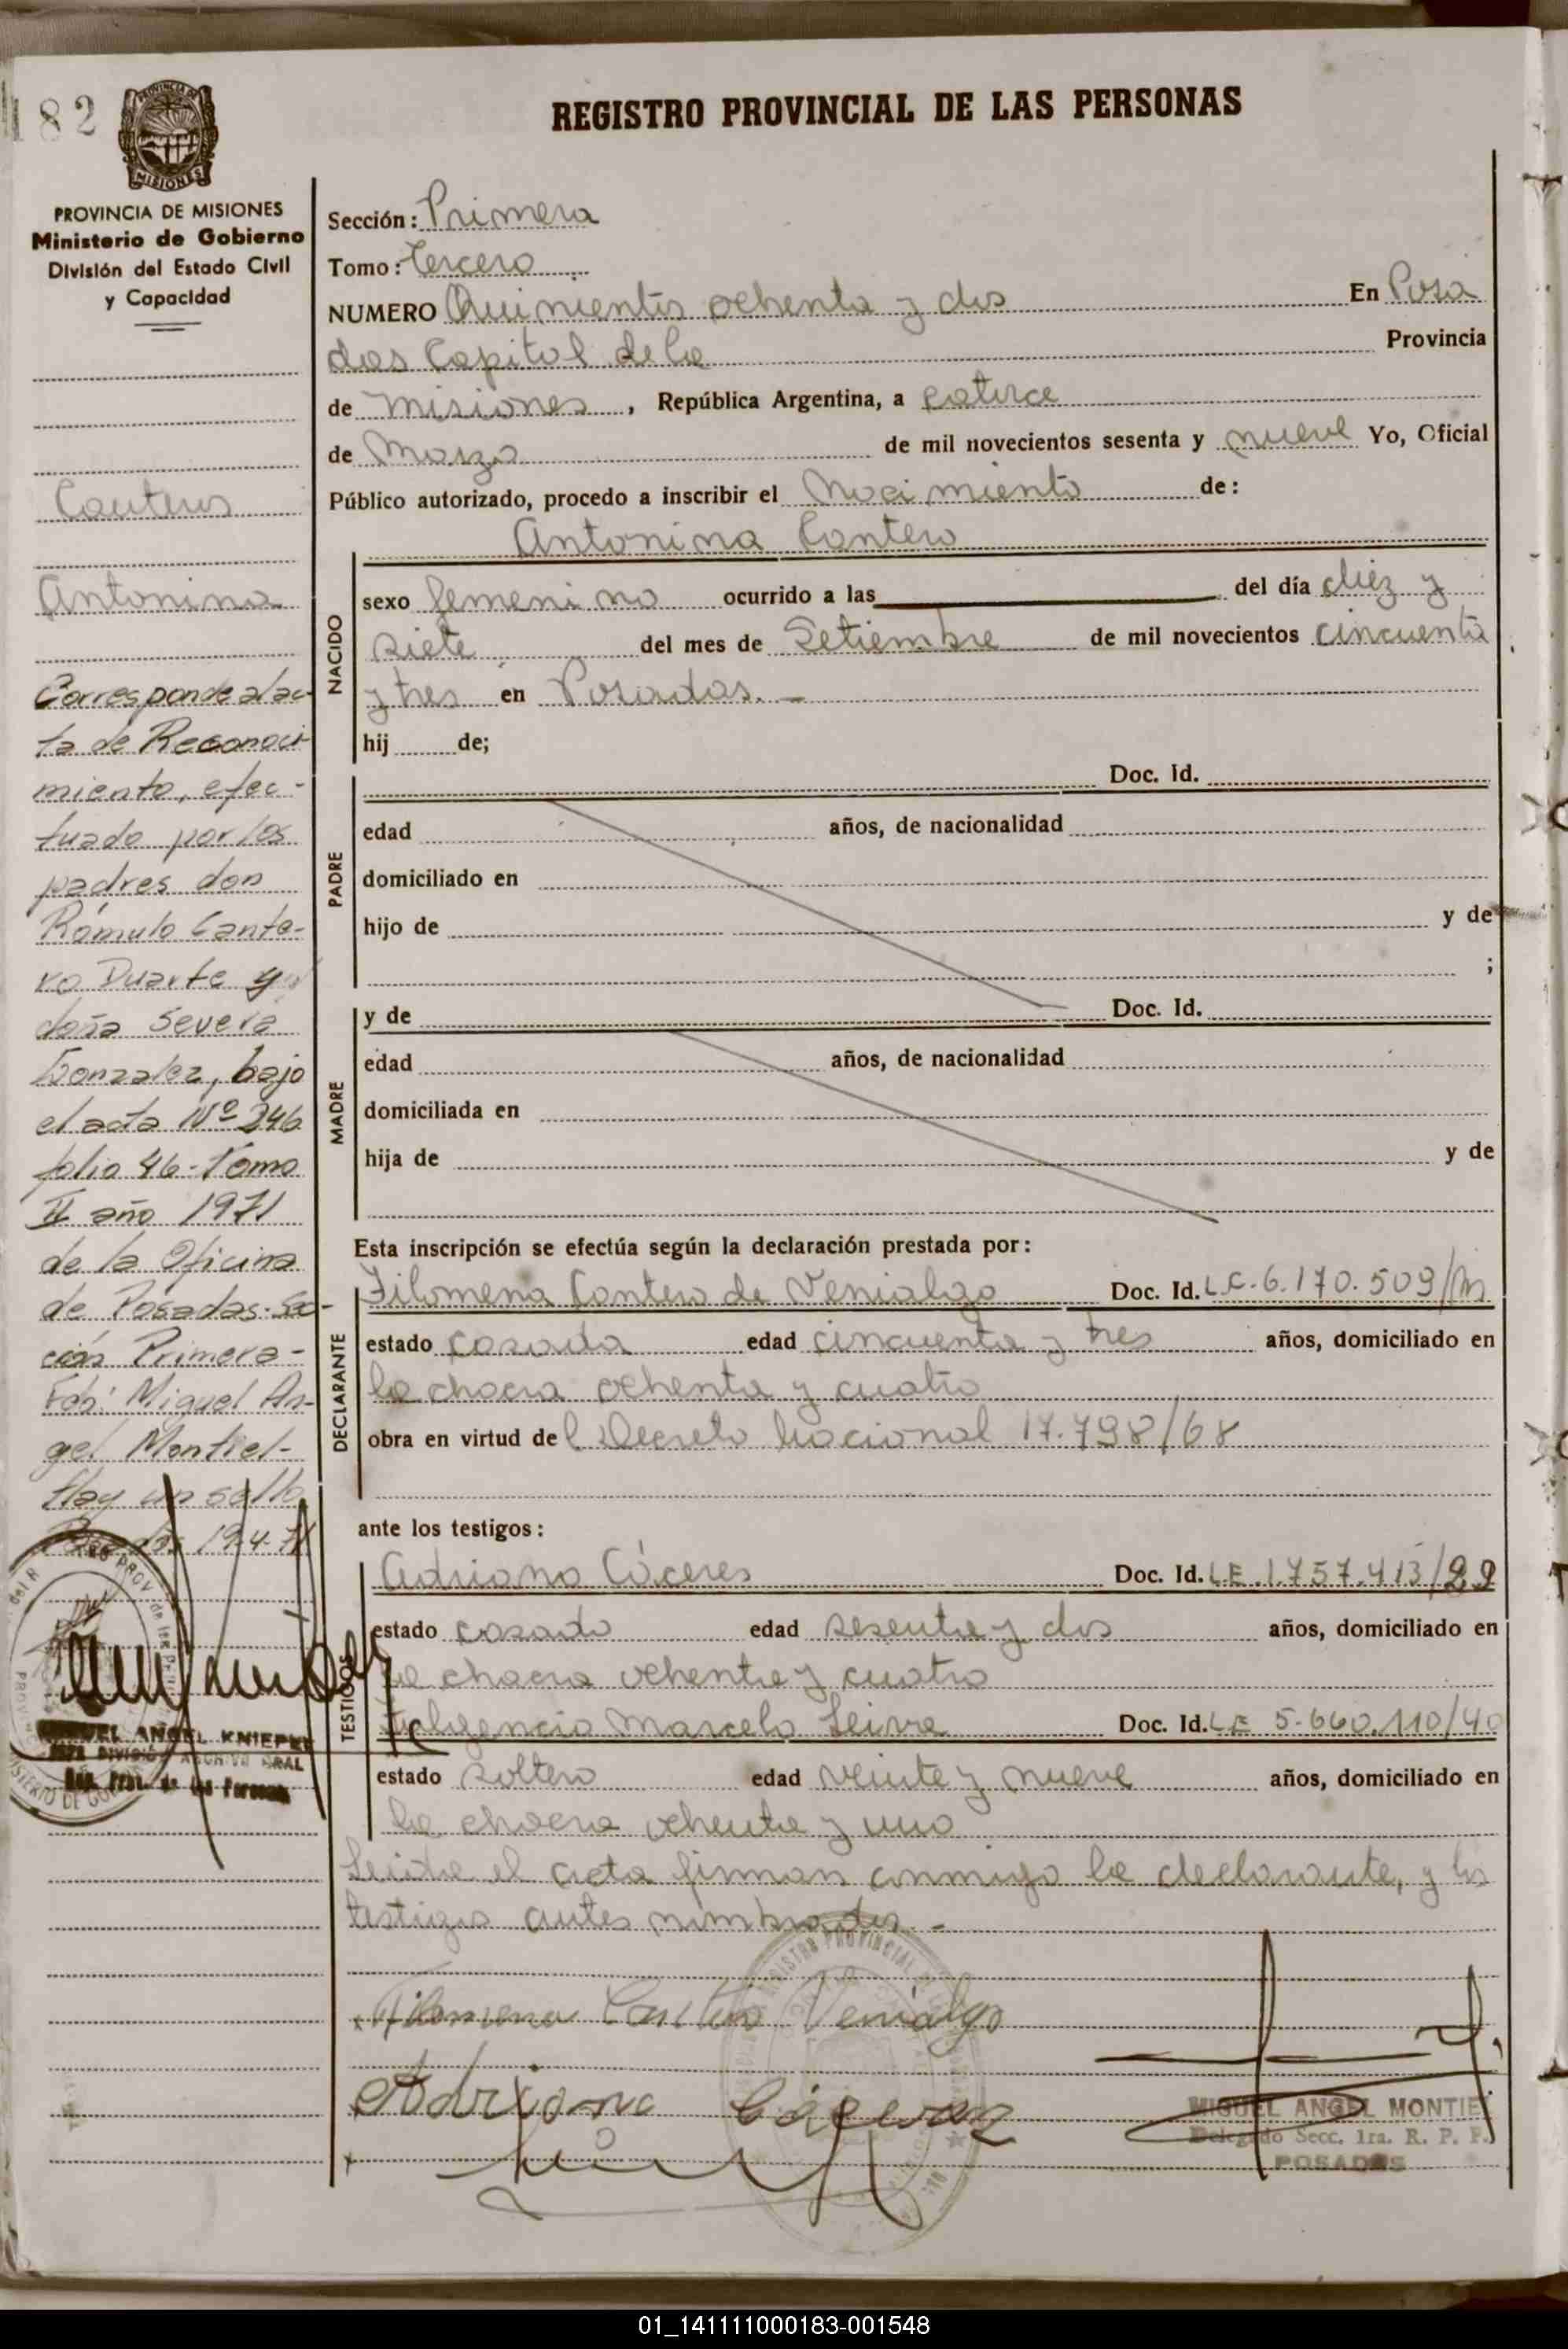 182
PROVINCIA DE MISIONES
PROVINCIA DE MISIONES
Ministerio de Gobierno
División del Estado Civil
y Capacidad
Canteros
Antonina
Corresponde al ac-
ta de Reconoci-
miento, efec-
tuado por los
padres don
Rómulo Cante-
ro Duarte y
doña Severa
Gonzalez, bajo
el acta Nº 246
folio 46-Tomo
II año 1971
de la Oficina
de Posadas: Sec-
ción Primera-
Fdo: Miguel An-
gel Montiel-
Hay un sello
Posadas 19.4.71
MIGUEL ANGEL KNIEPKE
JEFE DIVISIÓN ARCHIVO GRAL
Reg. Prov. de las Personas
REGISTRO PROVINCIAL DE LAS PERSONAS
Sección: Primera
Tomo: Tercero
NUMERO Quinientos ochenta y dos En Posa
das Capital de la Provincia
de Misiones, República Argentina, a catorce
de Marzo de mil novecientos sesenta y nueve Yo, Oficial
Público autorizado, procedo a inscribir el Nacimiento de:
Antonina Cantero
NACIDO
sexo femenino ocurrido a las del día diez y
siete del mes de Setiembre de mil novecientos cincuenta
y tres en Posadas.-
hij de;
PADRE
Doc. Id.
edad años, de nacionalidad
domiciliado en
hijo de y de
;
MADRE
y de Doc. Id.
edad años, de nacionalidad
domiciliada en
hija de y de
Esta inscripción se efectúa según la declaración prestada por:
DECLARANTE
Filomena Cantero de Venialgo Doc. Id. L.C. 6.170.509/M
estado casada edad cincuenta y tres años, domiciliado en
la chacra ochenta y cuatro
obra en virtud del Decreto Nacional 17.798/68
ante los testigos:
TESTIGOS
Adriano Cáceres Doc. Id. L.E. 1.757.413/29
estado casado edad sesenta y dos años, domiciliado en
la chacra ochenta y cuatro
Fulgencio Marcelo Leiva Doc. Id. LE 5.660.110/40
estado soltero edad veinte y nueve años, domiciliado en
la chacra ochenta y uno
Leída el acta firman conmigo la declarante, y los
testigos antes nombrados.-
Filomena Cantero Venialgo
Adriano
MIGUEL ANGEL MONTIEL
Delegado Secc. 1ra. R. P. P.
POSADAS
01_141111000183-001548